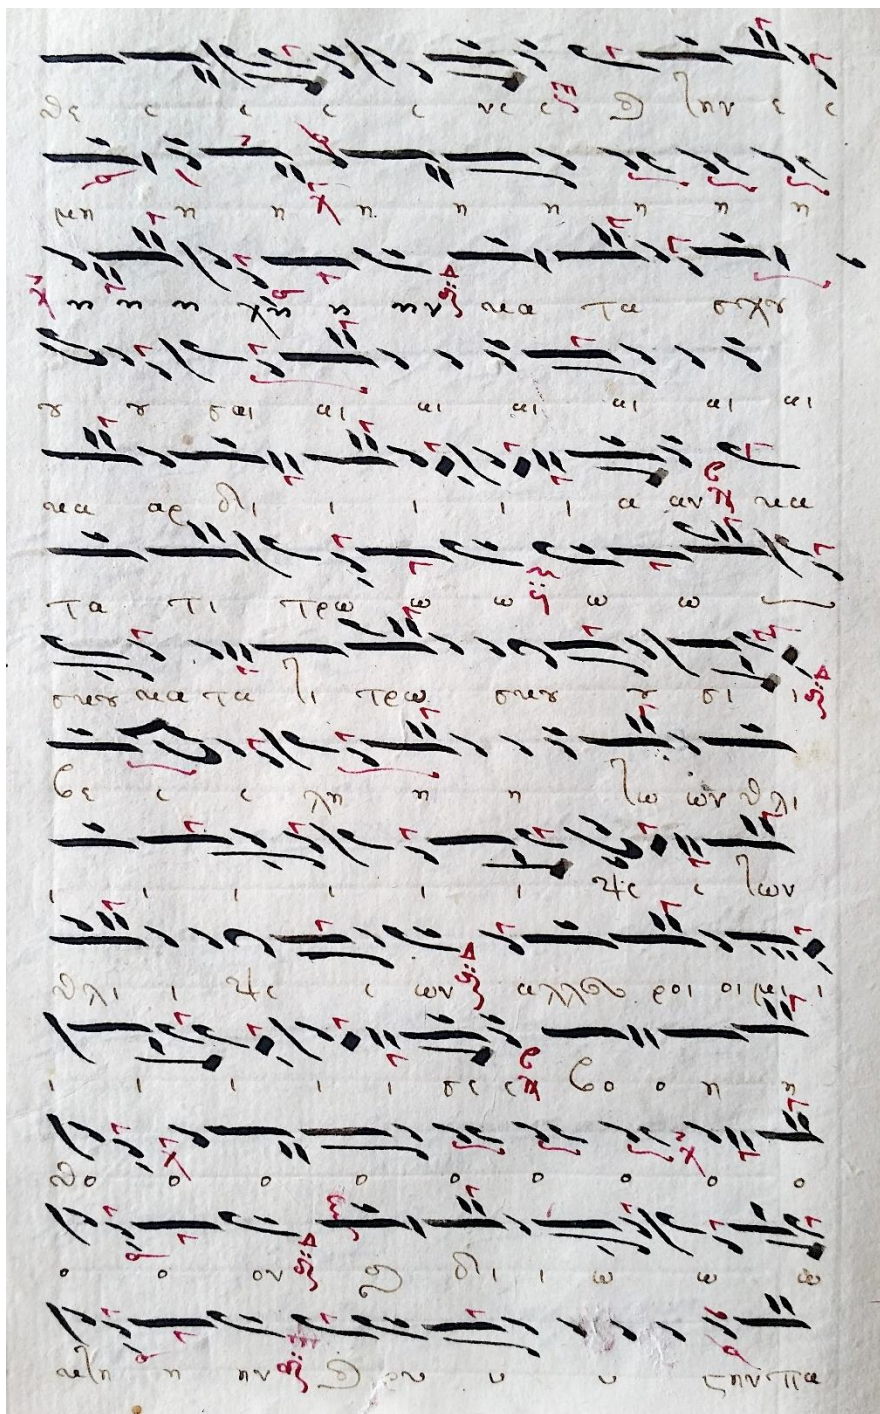 θε ε ε ε νε ε την ε ε
μη η η η η η η η η
η η η χη η ην κα τα σχου
ου ου σαι αι αι αι αι αι αι
κα αρ δι ι ι ι ι α αν κα
τα τι τρω ω ω ω ω
σκου κα τα τι τρω σκου ου σι ι
βε ε ε λη η η τω ων θλι
ι ι ι ι ι ι ψε ε των
θλι ι ψε ε ων αλλ ευ ροι οι μι ι
ι ι ι ι ι σε ε βο ο η η
θο ο ο ο ο ο ο ο
ο ο ον δι ι ω ω ω
κτη η ην υ υ στην πα